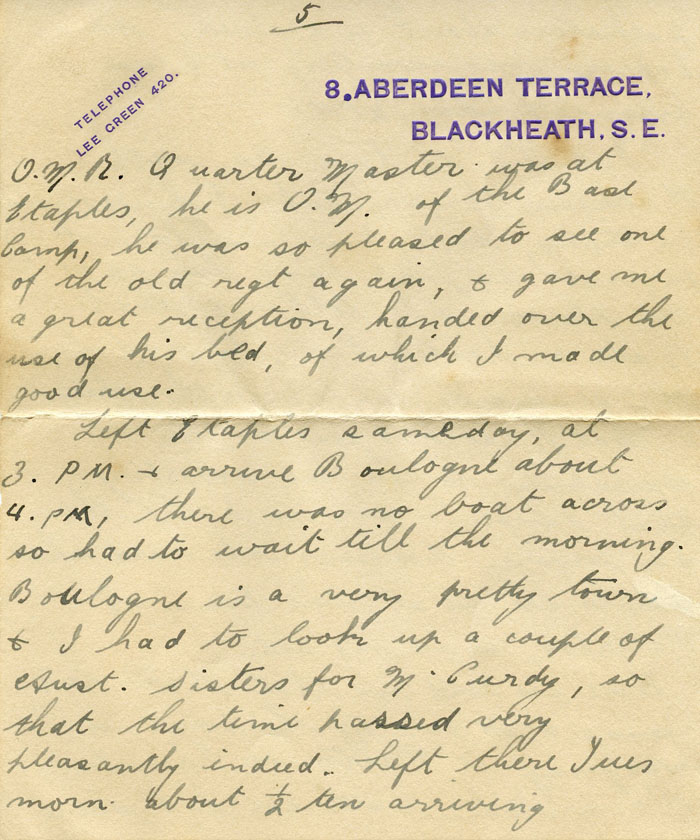 5
TELEPHONE
LEE GREEN 420.
8. ABERDEEN TERRACE,
BLACKHEATH, S.E.
O.M.R. Quarter Master was at
Etaples, he is Q.M. of the Base
Camp, he was so pleased to see one
of the old regt again, & gave me
a great reception, handed over the
use of his bed, of which I made
good use.
Left Etaples sameday, at
3. PM. & arrive Boulogne about
4. PM, there was no boat across
so had to wait till the morning.
Boulogne is a very pretty town
& I had to look up a couple of
Aust. Sisters for McCurdy, so
that the time passed very
pleasantly indeed. Left there Tues
morn. about ½ ten arriving